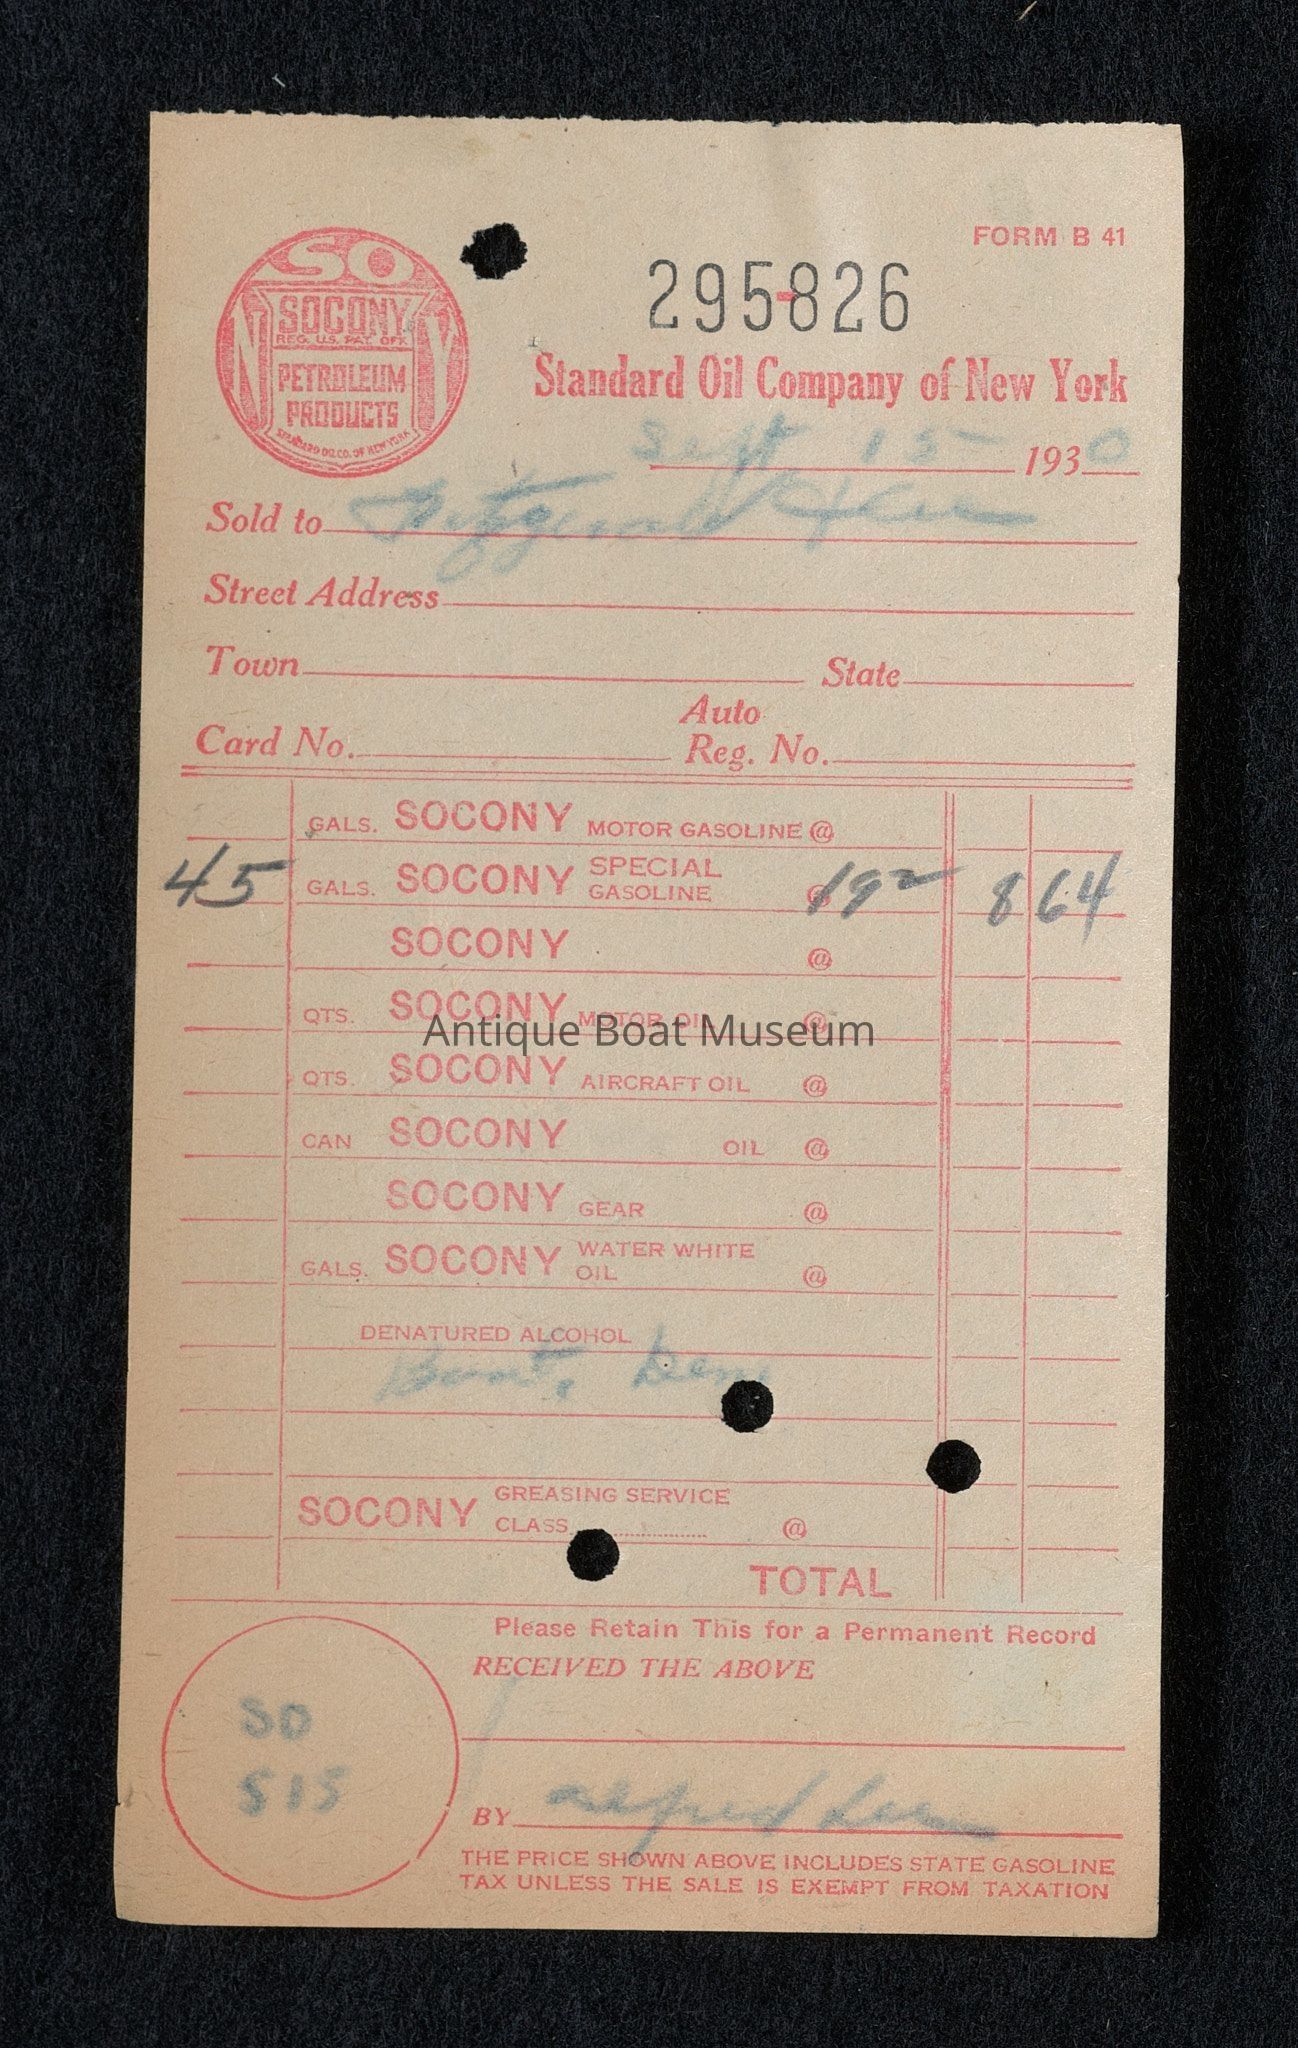 FORM B 41
295-826
SO
NY
SOCONY
REG. U.S. PAT. OFF.
PETROLEUM
PRODUCTS
STANDARD OIL CO. OF NEW YORK
Standard Oil Company of New York
Sept. 15 1930
Sold to Fitzgerald & Lee
Street Address
Town State
Auto
Card No. Reg. No.
GALS. SOCONY MOTOR GASOLINE @
45 GALS. SOCONY SPECIAL GASOLINE @ 19 2 8 64
SOCONY @
QTS. SOCONY MOTOR OIL @
Antique Boat Museum
QTS. SOCONY AIRCRAFT OIL @
CAN SOCONY OIL @
SOCONY GEAR @
GALS. SOCONY WATER WHITE OIL @
DENATURED ALCOHOL
SOCONY GREASING SERVICE
CLASS @
TOTAL
Please Retain This for a Permanent Record
RECEIVED THE ABOVE
SO
515
BY Alfred Lee
THE PRICE SHOWN ABOVE INCLUDES STATE GASOLINE
TAX UNLESS THE SALE IS EXEMPT FROM TAXATION